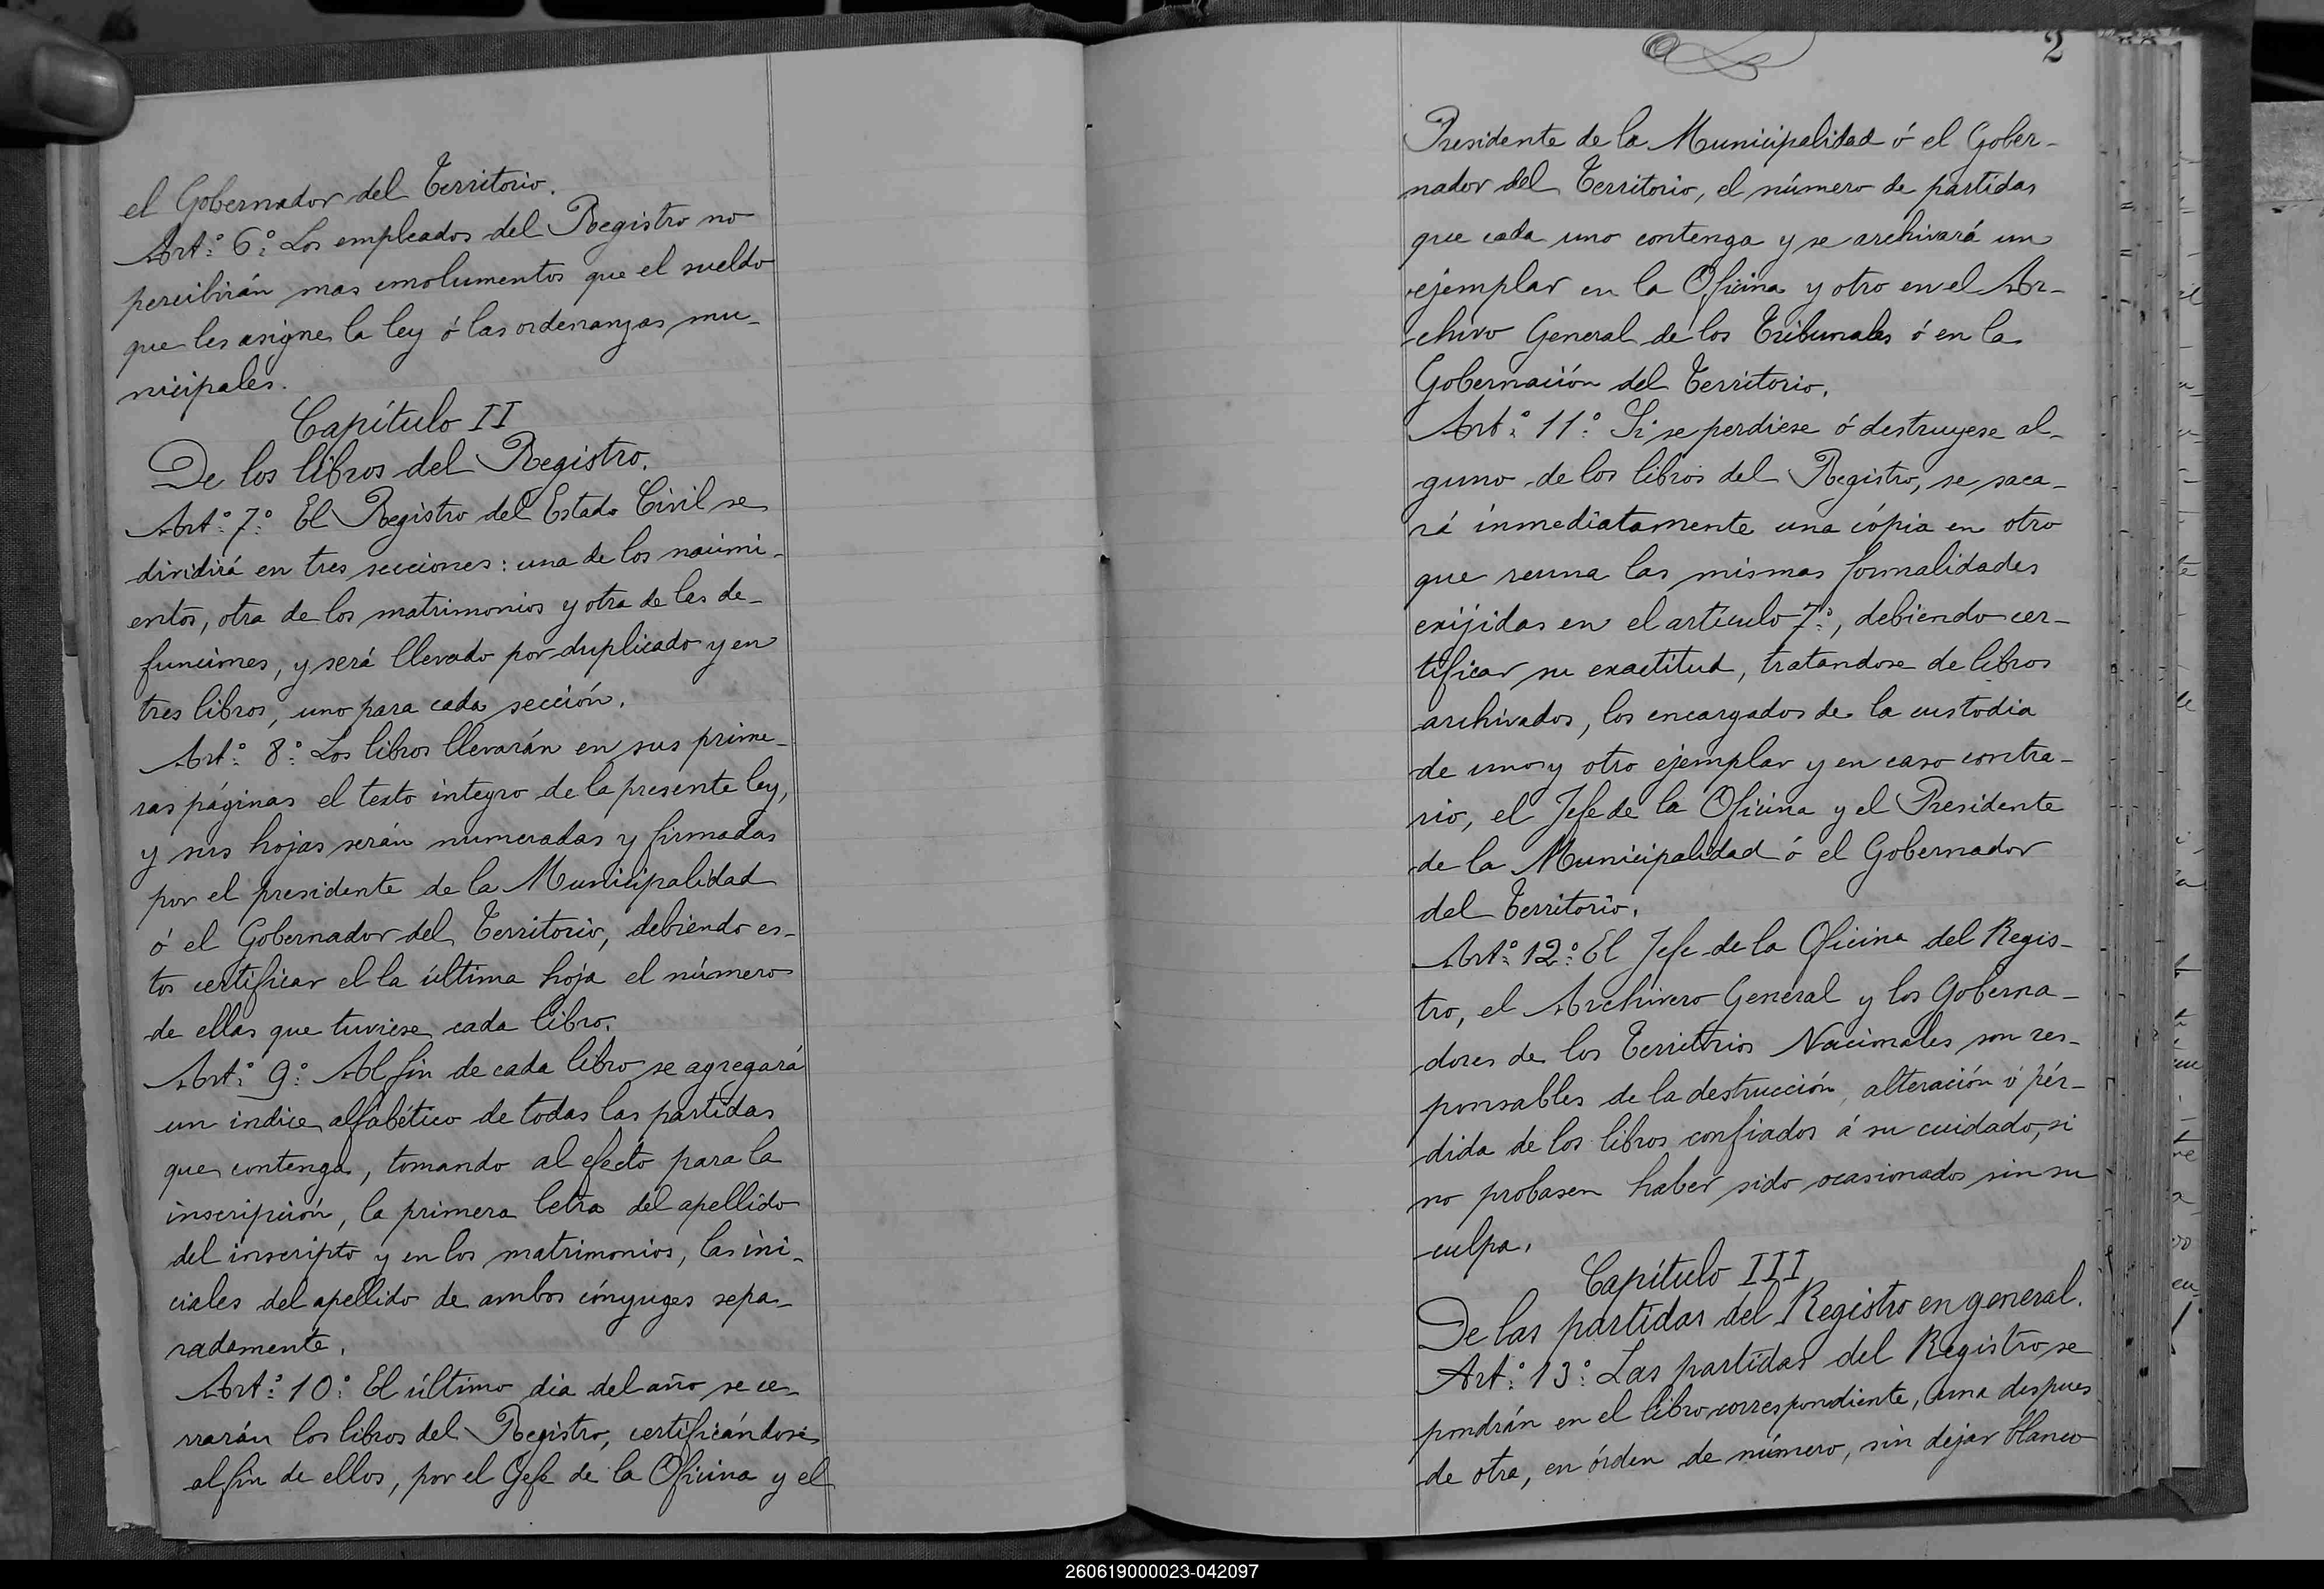 el Gobernador del Territorio.
Artº 6º Los empleados del Registro no
percibirán mas emolumentos que el sueldo
que les asigne la ley ó las ordenanzas mu-
nicipales.
Capítulo II
De los libros del Registro.
Artº 7º El Registro del Estado Civil se
dividirá en tres secciones: una de los nacimi-
entos, otra de los matrimonios y otra de las de-
funciones, y será llevado por duplicado y en
tres libros, uno para cada sección.
Artº 8º Los libros llevarán en sus prime-
ras páginas el texto integro de la presente ley,
y sus hojas serán numeradas y firmadas
por el presidente de la Municipalidad
ó el Gobernador del Territorio, debiendo es-
tos certificar el la última hoja el número
de ellas que tuviese cada libro.
Artº 9º Al fin de cada libro se agregará
un indice alfabético de todas las partidas
que contenga, tomando al efecto para la
inscripción, la primera letra del apellido
del inscripto y en los matrimonios, las ini-
ciales del apellido de ambos cónyuges sepa-
radamente.
Artº 10º El último dia del año se ce-
rrarán los libros del Registro, certificándose
al fin de ellos, por el Gefe de la Oficina y el
2
Presidente de la Municipalidad ó el Gober-
nador del Territorio, el número de partidas
que cada uno contenga y se archivará un
ejemplar en la Oficina y otro en el Ar-
chivo General de los Tribunales ó en la
Gobernación del Territorio.
Artº 11º Si se perdiese ó destruyese al-
guno de los libros del Registro, se saca-
rá inmediatamente una cópia en otro
que reuna las mismas formalidades
exijidas en el artículo 7º, debiendo cer-
tificar su exactitud, tratandose de libros
archivados, los encargados de la custodia
de uno y otro ejemplar y en caso contra-
rio, el Jefe de la Oficina y el Presidente
de la Municipalidad ó el Gobernador
del Territorio.
Artº 12º El Jefe de la Oficina del Regis-
tro, el Archivero General y los Goberna-
dores de los Territorios Nacionales son res-
ponsables de la destrucción, alteración ó pér-
dida de los libros confiados á su cuidado, si
no probasen haber sido ocasionados sin su
culpa.
Capítulo III
De las partidas del Registro en general.
Artº 13º Las partidas del Registro se
pondrán en el libro correspondiente, una despues
de otra, en órden de número, sin dejar blanco
260619000023-042097